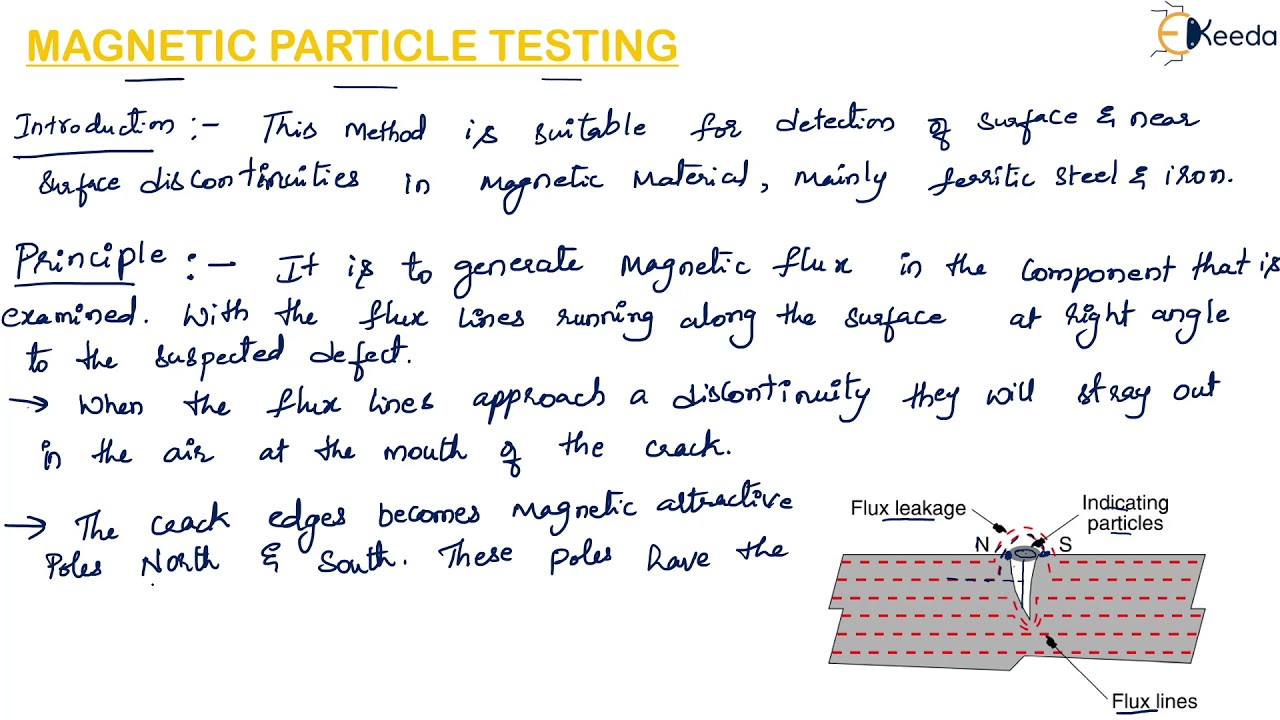 MAGNETIC PARTICLE TESTING
EKeeda
Introduction :- This method is suitable for detection of surface & near
surface discontinuities in magnetic material, mainly ferritic steel & iron.
Principle :- It is to generate magnetic flux in the component that is
examined. With the flux lines running along the surface at right angle
to the suspected defect.
→ When the flux lines approach a discontinuity they will stray out
in the air at the mouth of the crack.
→ The crack edges becomes magnetic attractive
Poles North & South. These poles have the
Flux leakage
Indicating
particles
N
S
Flux lines